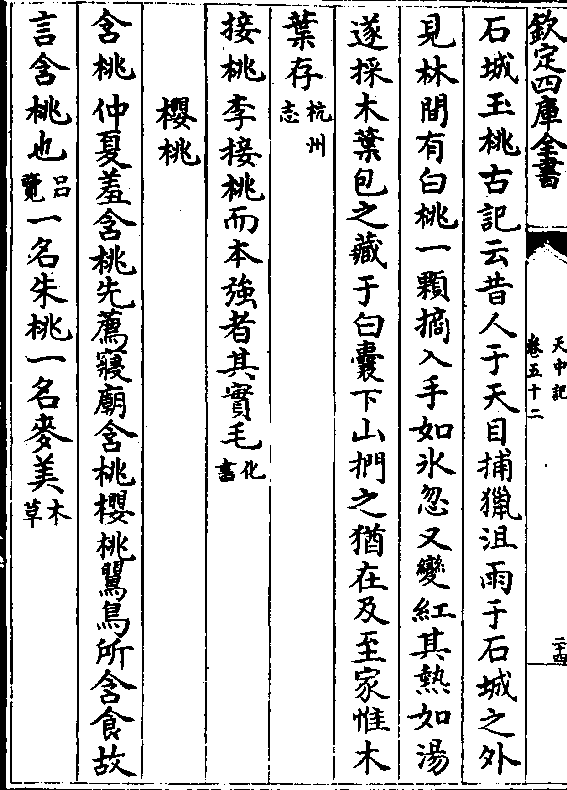 欽定四庫全書
天中記
卷五十二
二十四
石城玉桃古記云昔人于天目捕獵沮雨于石城之外
見林間有白桃一顆摘入手如氷忽又變紅其熱如湯
遂採木葉包之藏于白囊下山捫之猶在及至家惟木
葉存杭州志
接桃李接桃而本強者其實毛化書
櫻桃
含桃仲夏羞含桃先薦寢廟含桃櫻桃鸎鳥所含食故
言含桃也呂覽一名朱桃一名麥英本草